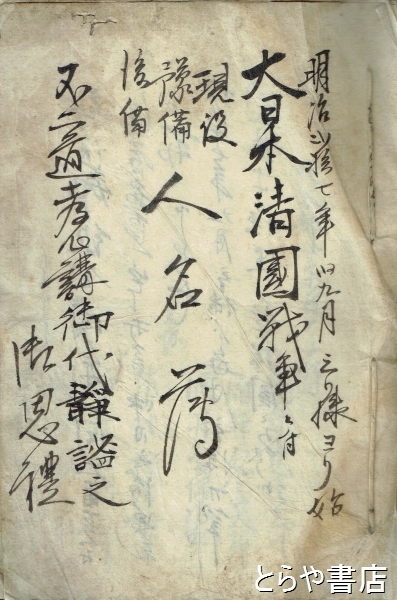 明治二拾七年旧九月三日様ヨリ始
大日本清國戦争ニ付
現役
豫備
後備
人名簿
不二道孝心講御代静謐之
御恩禮
とらや書店